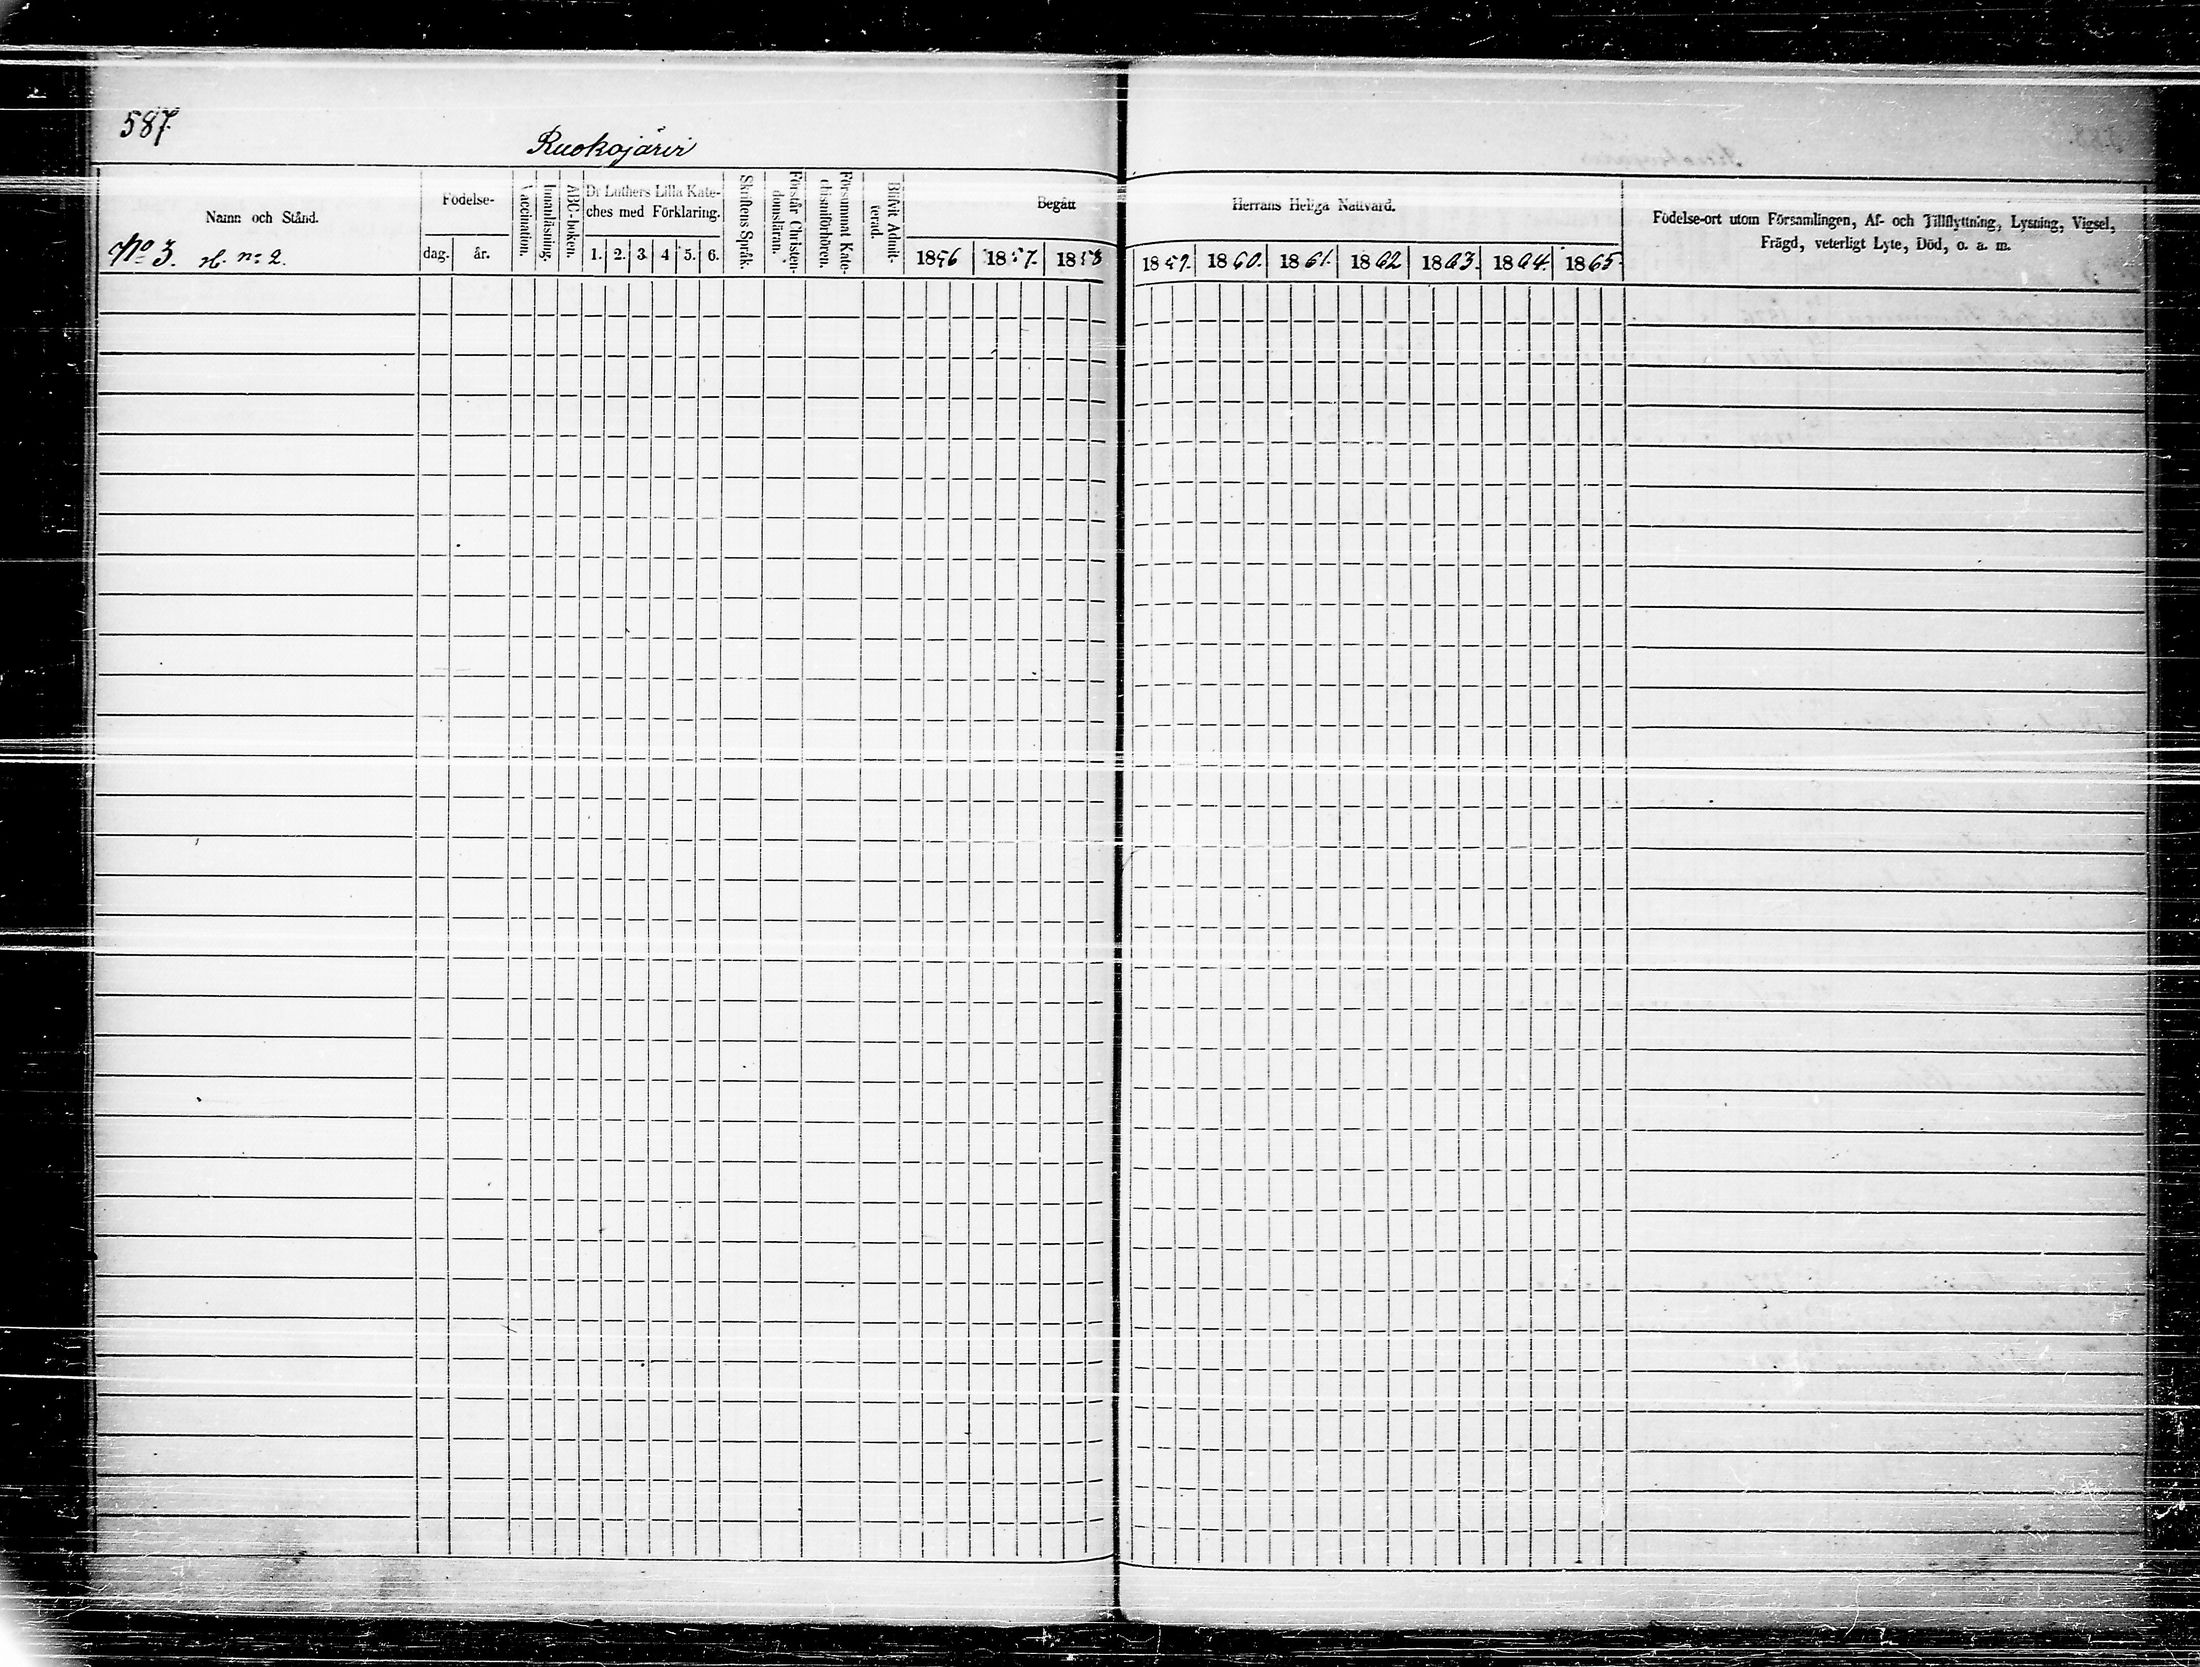 587.
Ruokojärvi
Namn och Stånd.
No 3. sk. no 2.
Födelse-
dag. år.
Vaccination.
Innanläsning.
ABC-boken.
Dr Luthers Lilla Kate-
ches med Förklaring.
1. 2. 3. 4 5. 6.
Skriftens Språk.
Förstår Christen-
domsläran.
Försummat Kate-
chismiförhören.
Blifvit Admit-
terad.
Begått
1856 1857. 1858
Herrans Heliga Nattvard.
1859. 1860. 1861. 1862 1863. 1864. 1865.
Födelse-ort utom Församlingen, Af- och Tillflyttning, Lysning, Vigsel,
Frägd, veterligt Lyte, Död, o. a. m.